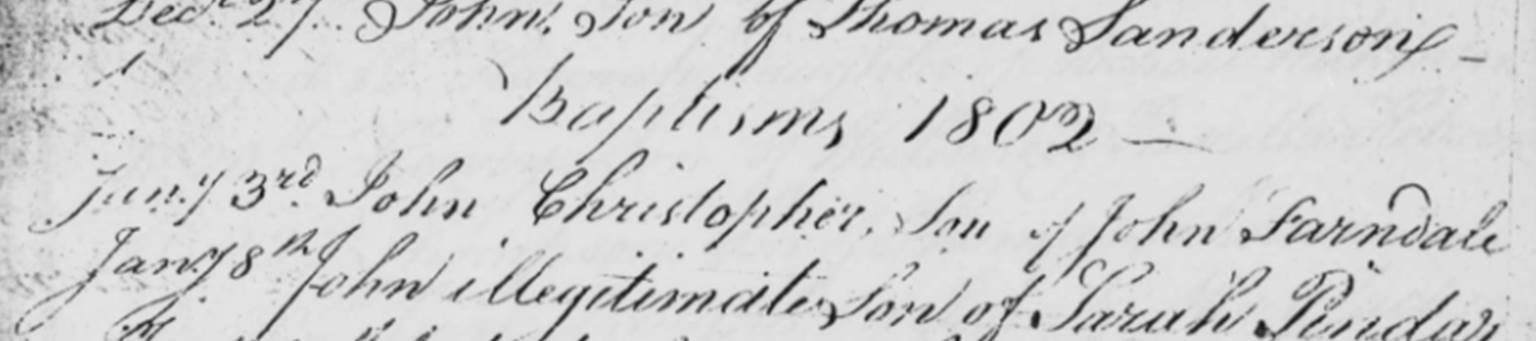 Decr 27 John, Son of Thomas Sanderson
Baptisms 1802
Jany 3rd John Christopher, Son of John Farndale
Jany 8th John illegitimate Son of Sarah Pindar